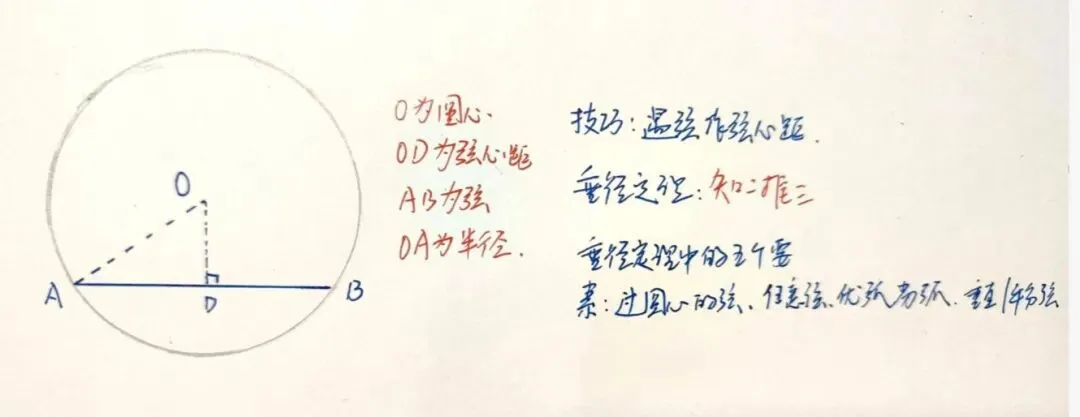 O
A
D
B
O为圆心.
OD为弦心距
AB为弦
OA为半径.
技巧:遇弦作弦心距.
垂径定理:知二推三
垂径定理中的五个要
素:过圆心的弦、任意弦、优弧劣弧、垂直/平分弦